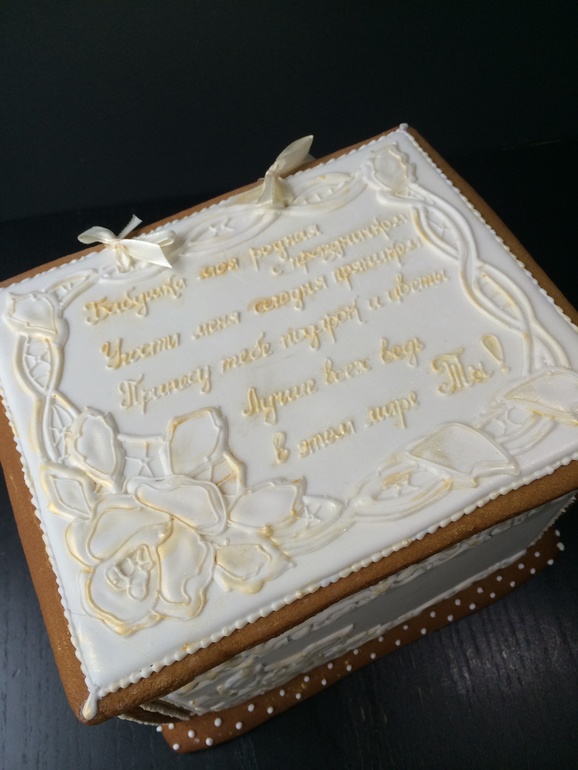 Бабушка моя родная
с праздником
Угости меня сегодня пряником
Принесу тебе подарок и цветы
Лучше всех ведь
в этом мире Ты!